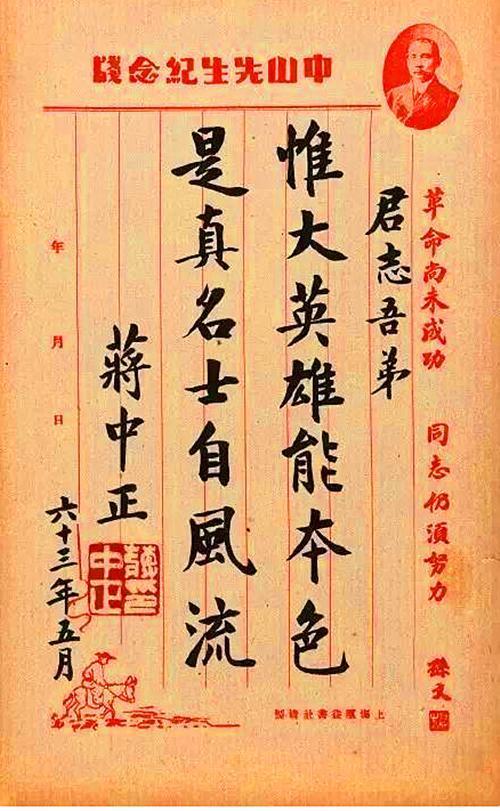 中山先生紀念牋
革命尚未成功 同志仍須努力 孫文
君志吾弟
惟大英雄能本色
是真名士自風流
蔣中正
中正
六十三年五月
年 月 日
上海